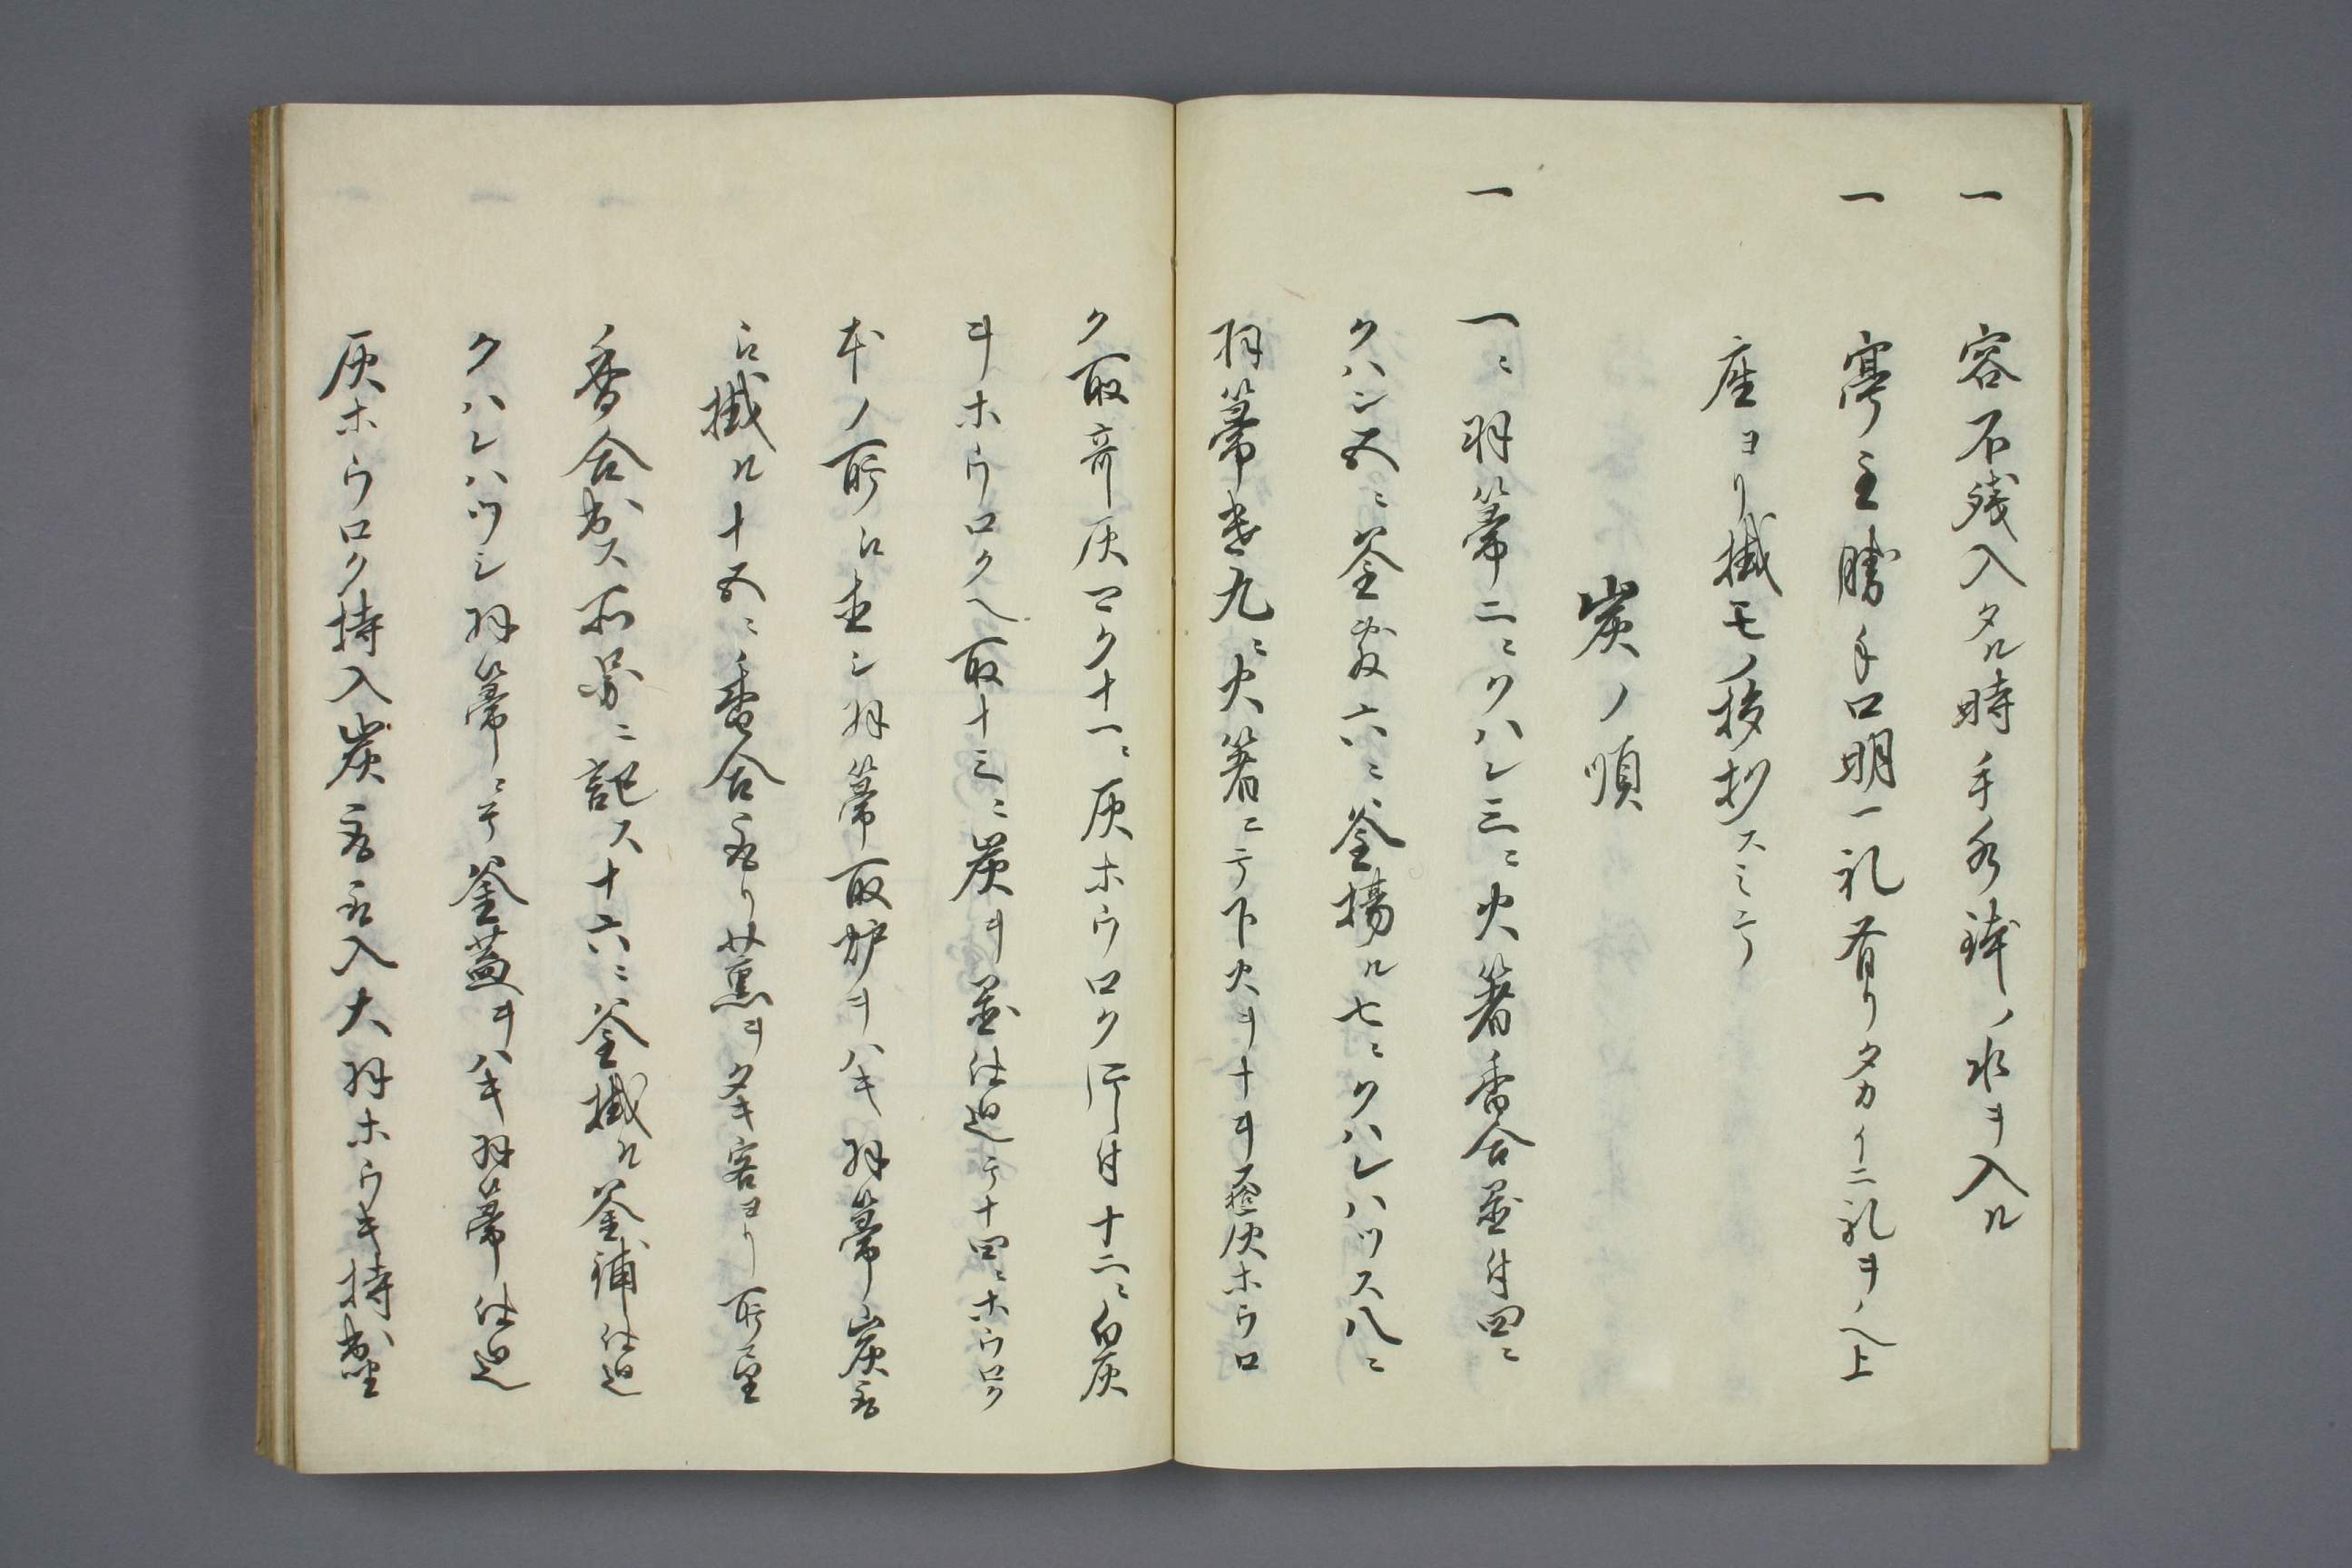 一 客不残入タル時手水鉢ノ水ヲ入ル
一 亭主勝手口明一礼有リタカイニ礼ヲノヘ上
座ヨリ掛モノ挨拶スミテ
炭ノ順
一 一ニ羽箒二ニクハン三ニ火箸香合置付四ニ
クハン五ニ釜敷六ニ釜揚ル七ニクハンハツス八ニ
羽箒遣九ニ火箸ニテ下火ヲナヲ灰ホウロ
ク取寄灰マク十一ニ灰ホウロク付十二ニ白灰
ヲホウロクヘ取十三ニ炭ヲ置仕廻テ十四ニホウロク
本ノ所ニ直シ羽箒取炉ヲハキ羽箒炭
ニ掛ル十五ニ香合取リ薫ヲタキ客ヨリ所望
香合出ス前ニ記ス十六ニ釜掛ル釜鋪仕廻
クハンハツシ羽箒ニテ釜蓋ヲハキ羽箒仕廻
灰ホウロク持入炭入大羽ホウキ持出